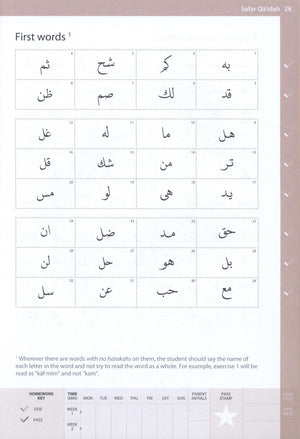 Safar Qā'idah | 28
First words ¹
به كم شح ثم
قد لك صم ظن
هل ما له غل
تر من شك قل
يد هى لو مس
حق مد ضل ان
بل هو حل لن
مع حب عن سل
¹ Wherever there are words with no ḥarakahs on them, the student should say the name of
each letter in the word and not try to read the word as a whole. For example, exercise 1 will be
read as "kāf mīm" and not "kam".
HOMEWORK KEY TIME (MIN) MON TUE WED THU FRI SAT SUN PARENT INITIALS PASS STAMP
DUE WEEK 1
PASS WEEK 2